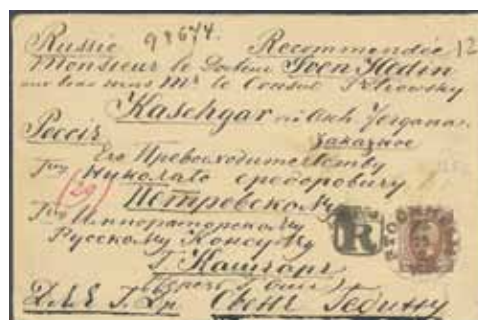 Russie 98674. Recommandée 12
Monsieur le Docteur Sven Hedin
aux bons soins Mr le Consul Petrowsky
Kaschgar via Osch Fergana.
Россія Заказное
Его Превосходительству
Николаю Федоровичу
(29) Петровскому
Императорскому
Русскому Консулу
R
Г. Кашгаръ
(чрезъ г. Ошъ)
Для Г. Др. Свенъ Гедину